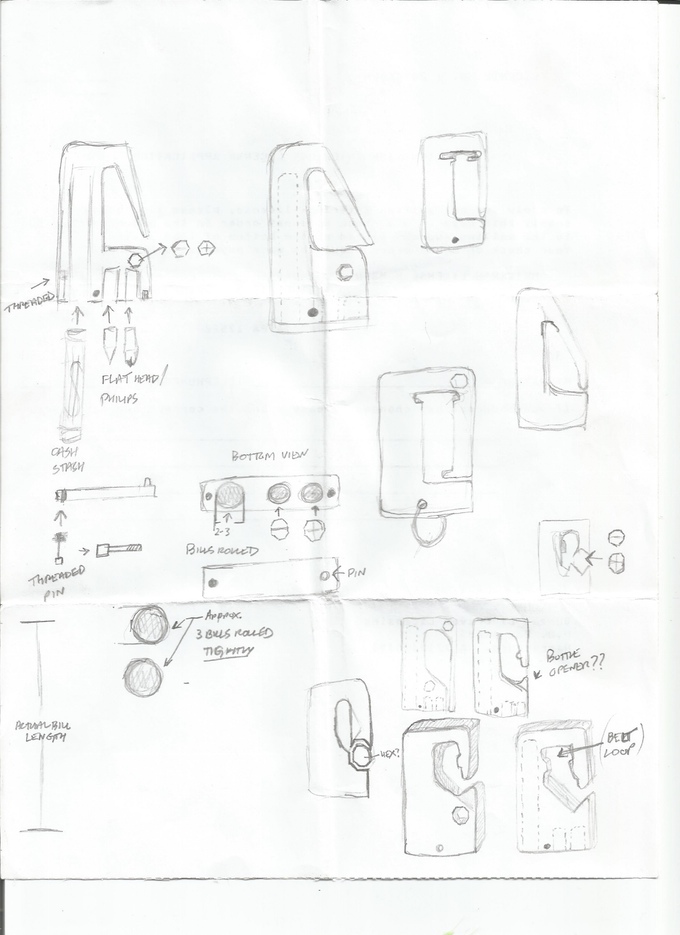 THREADED
FLAT HEAD/
PHILIPS
CASH
STASH
BOTTOM VIEW
2-3
BILLS ROLLED
PIN
THREADED
PIN
APPROX.
3 BILLS ROLLED
TIGHTLY
ACTUAL BILL
LENGTH
BOTTLE
OPENER??
HEX?
(BELT
LOOP)